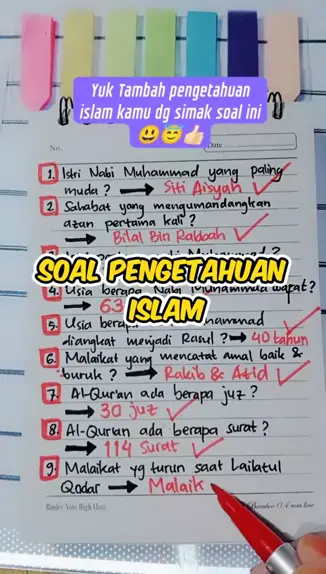 Yuk Tambah pengetahuan
islam kamu dg simak soal ini
😃😇👍🏻
No.
Date
1. Istri Nabi Muhammad yang paling
muda ? → Siti Aisyah ✓
2. Sahabat yang mengumandangkan
azan pertama kali ?
→ Bilal Bin Rabbah ✓
SOAL PENGETAHUAN
ISLAM
4. Usia berapa Nabi Muhammad wafat?
→ 63
5. Usia Muhammad
diangkat menjadi Rasul ? → 40 tahun
6. Malaikat yang mencatat amal baik &
buruk ? → Rakib & Atid ✓
7. Al-Qur'an ada berapa juz ?
→ 30 juz ✓
8. Al-Qur'an ada berapa surat ?
→ 114 Surat ✓
9. Malaikat yg turun saat Lailatul
Qodar → Malaik